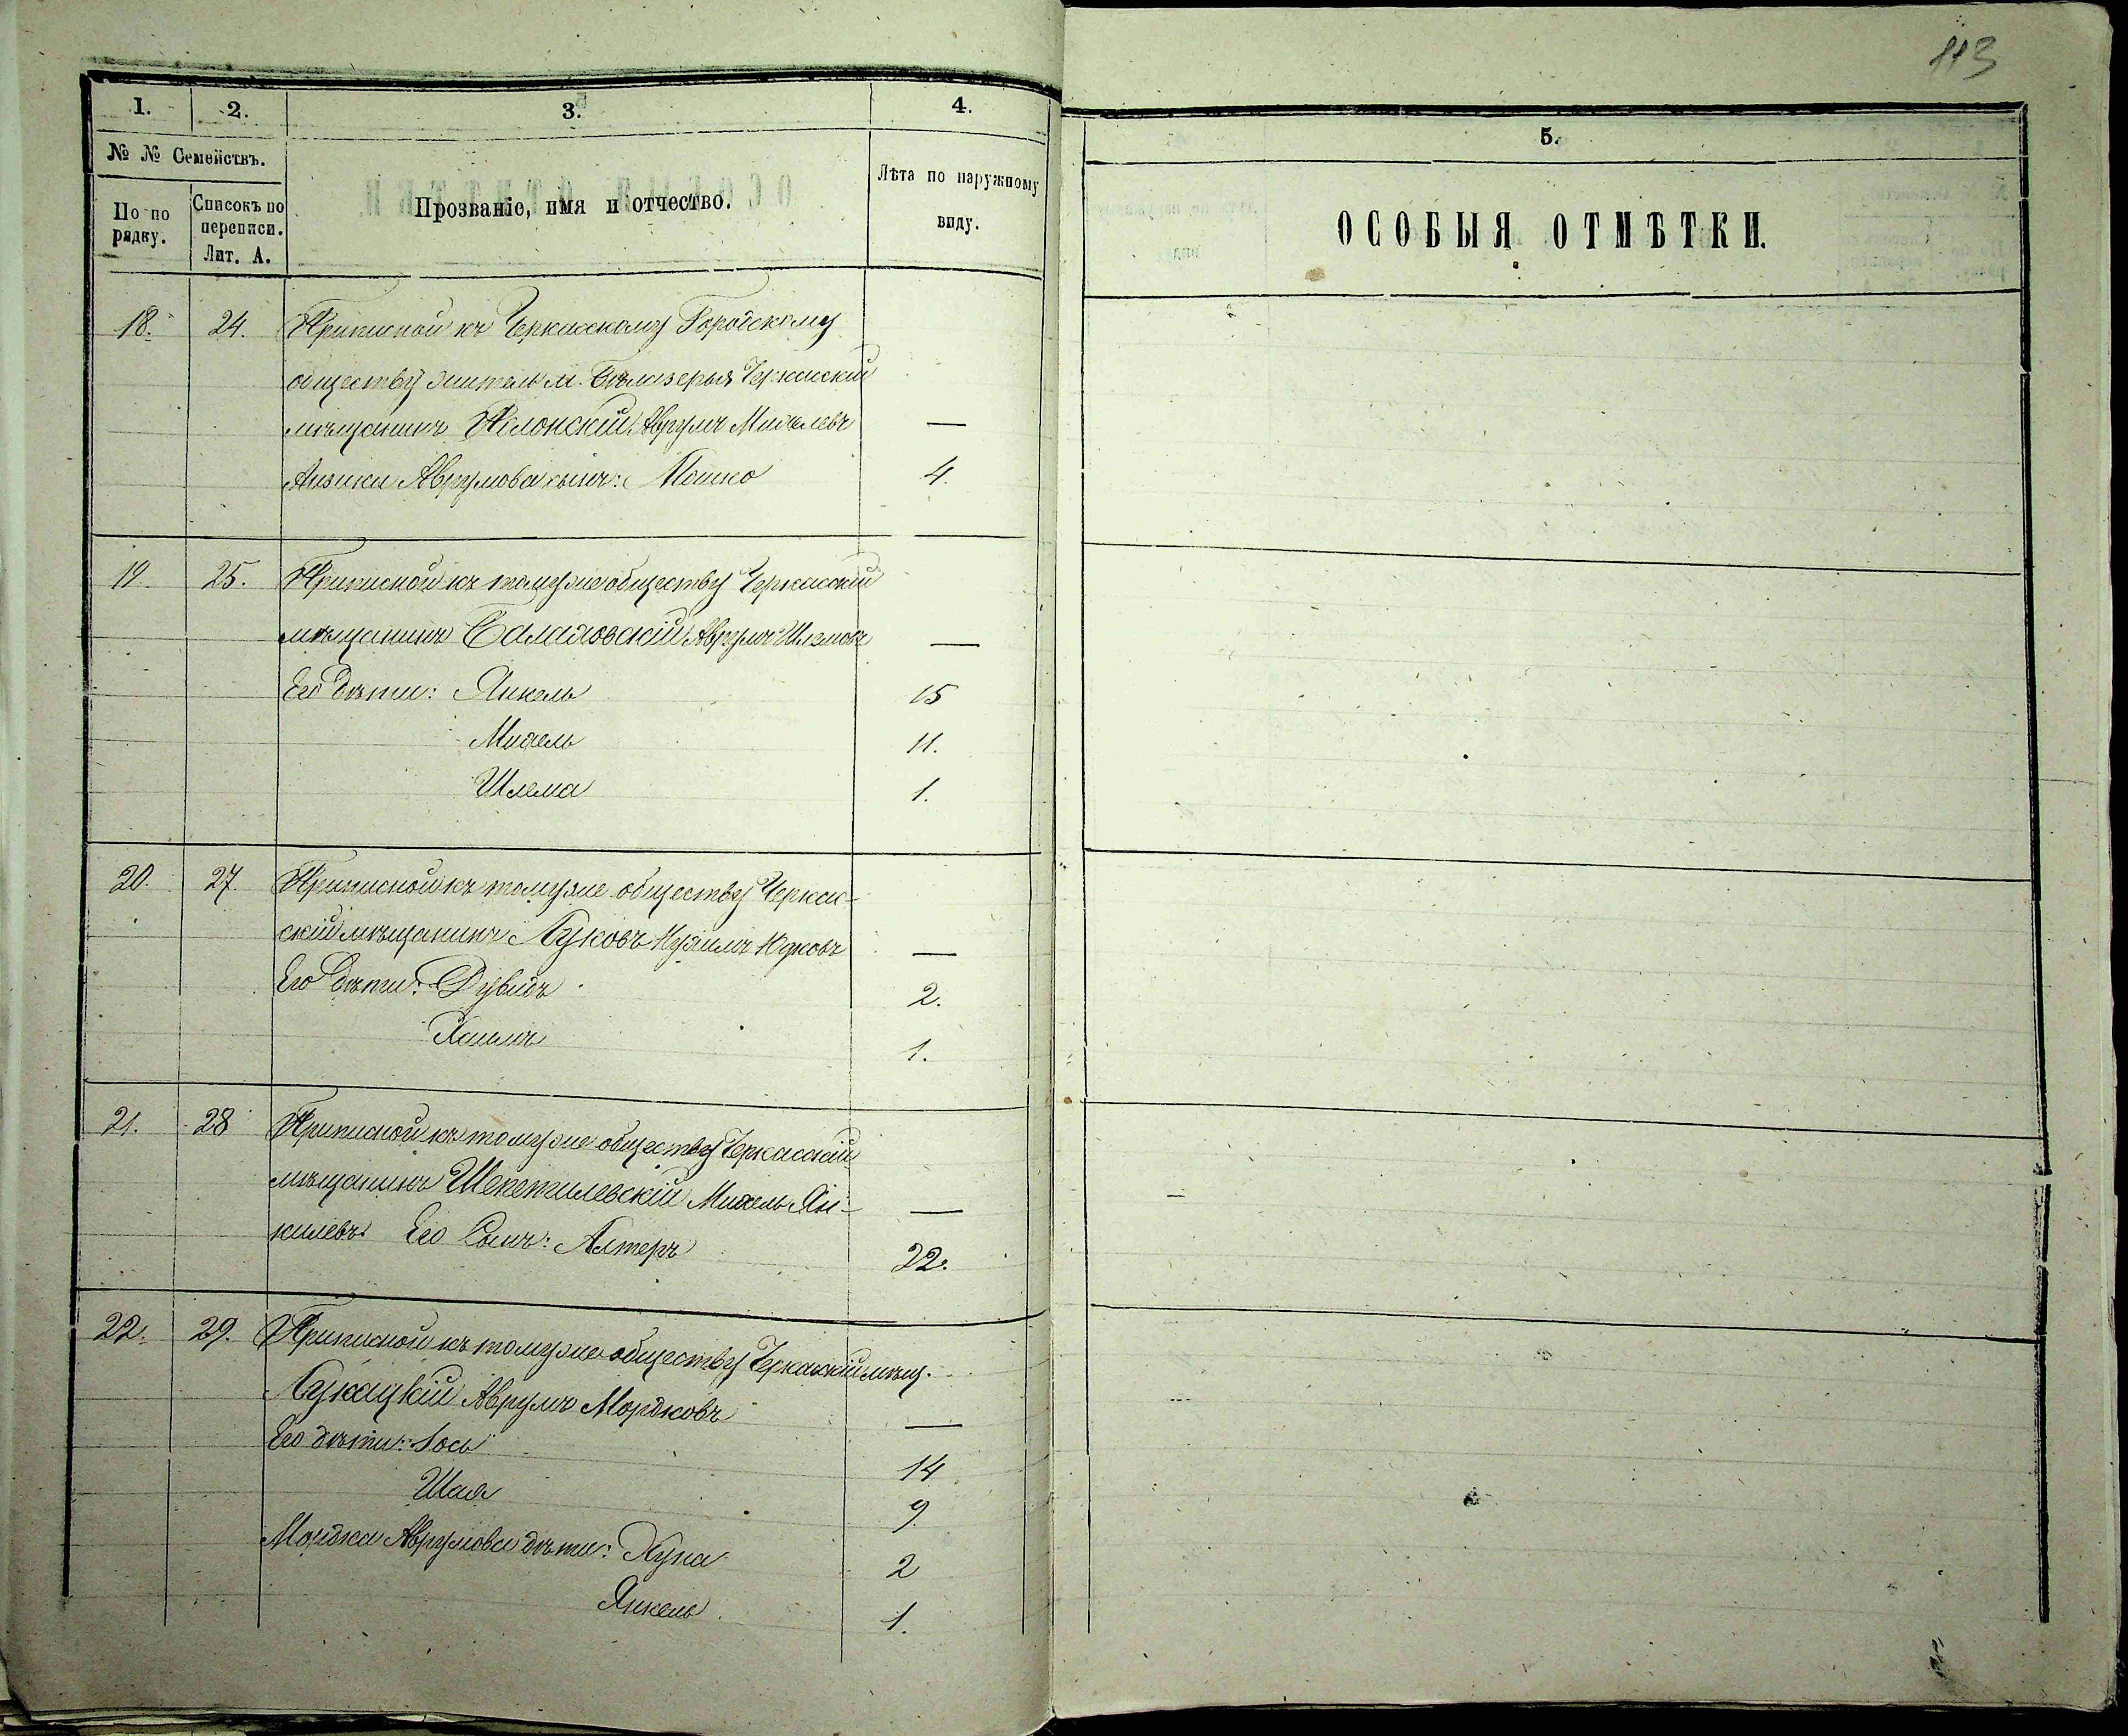 113
1. 2. 3. 4. 5.
№ № Семействъ.
По по рядку.
Списокъ по переписи. Лит. А.
Прозваніе, имя и отчество.
Лѣта по наружному виду.
ОСОБЫЯ ОТМѢТКИ.
18. 24. Приписной къ Черкасскому Городскому
обществу житель м. Бѣлозерья Черкаскій
мѣщанинъ Яблонскій Аврумъ Михелевъ —
Аизика Аврумова сынъ: Мошко 4.
19. 25. Приписной къ томуже обществу Черкасскій
мѣщанинъ Балаховскій Аврумъ Шлемовъ —
Его дѣти: Янкель 15
Михель 11.
Шлема 1.
20. 27 Приписной къ томуже обществу Черкас-
скій мѣщанинъ Луковъ Нухимъ Юдковъ —
Его дѣти: Дувидъ 2.
Хаимъ 1.
21. 28 Приписной къ томуже обществу Черкасскій
мѣщанинъ Шепетилевскій Михель Ян- —
килевъ Его Сынъ: Алтеръ 22.
22. 29. Приписной къ томуже обществу Черкасскій мѣщ.
Лукацкій Аврумъ Мордковъ —
Его дѣти: Іось 14
Шая 9.
Мордка Аврумова дѣти: Хуна 2
Янкель 1.